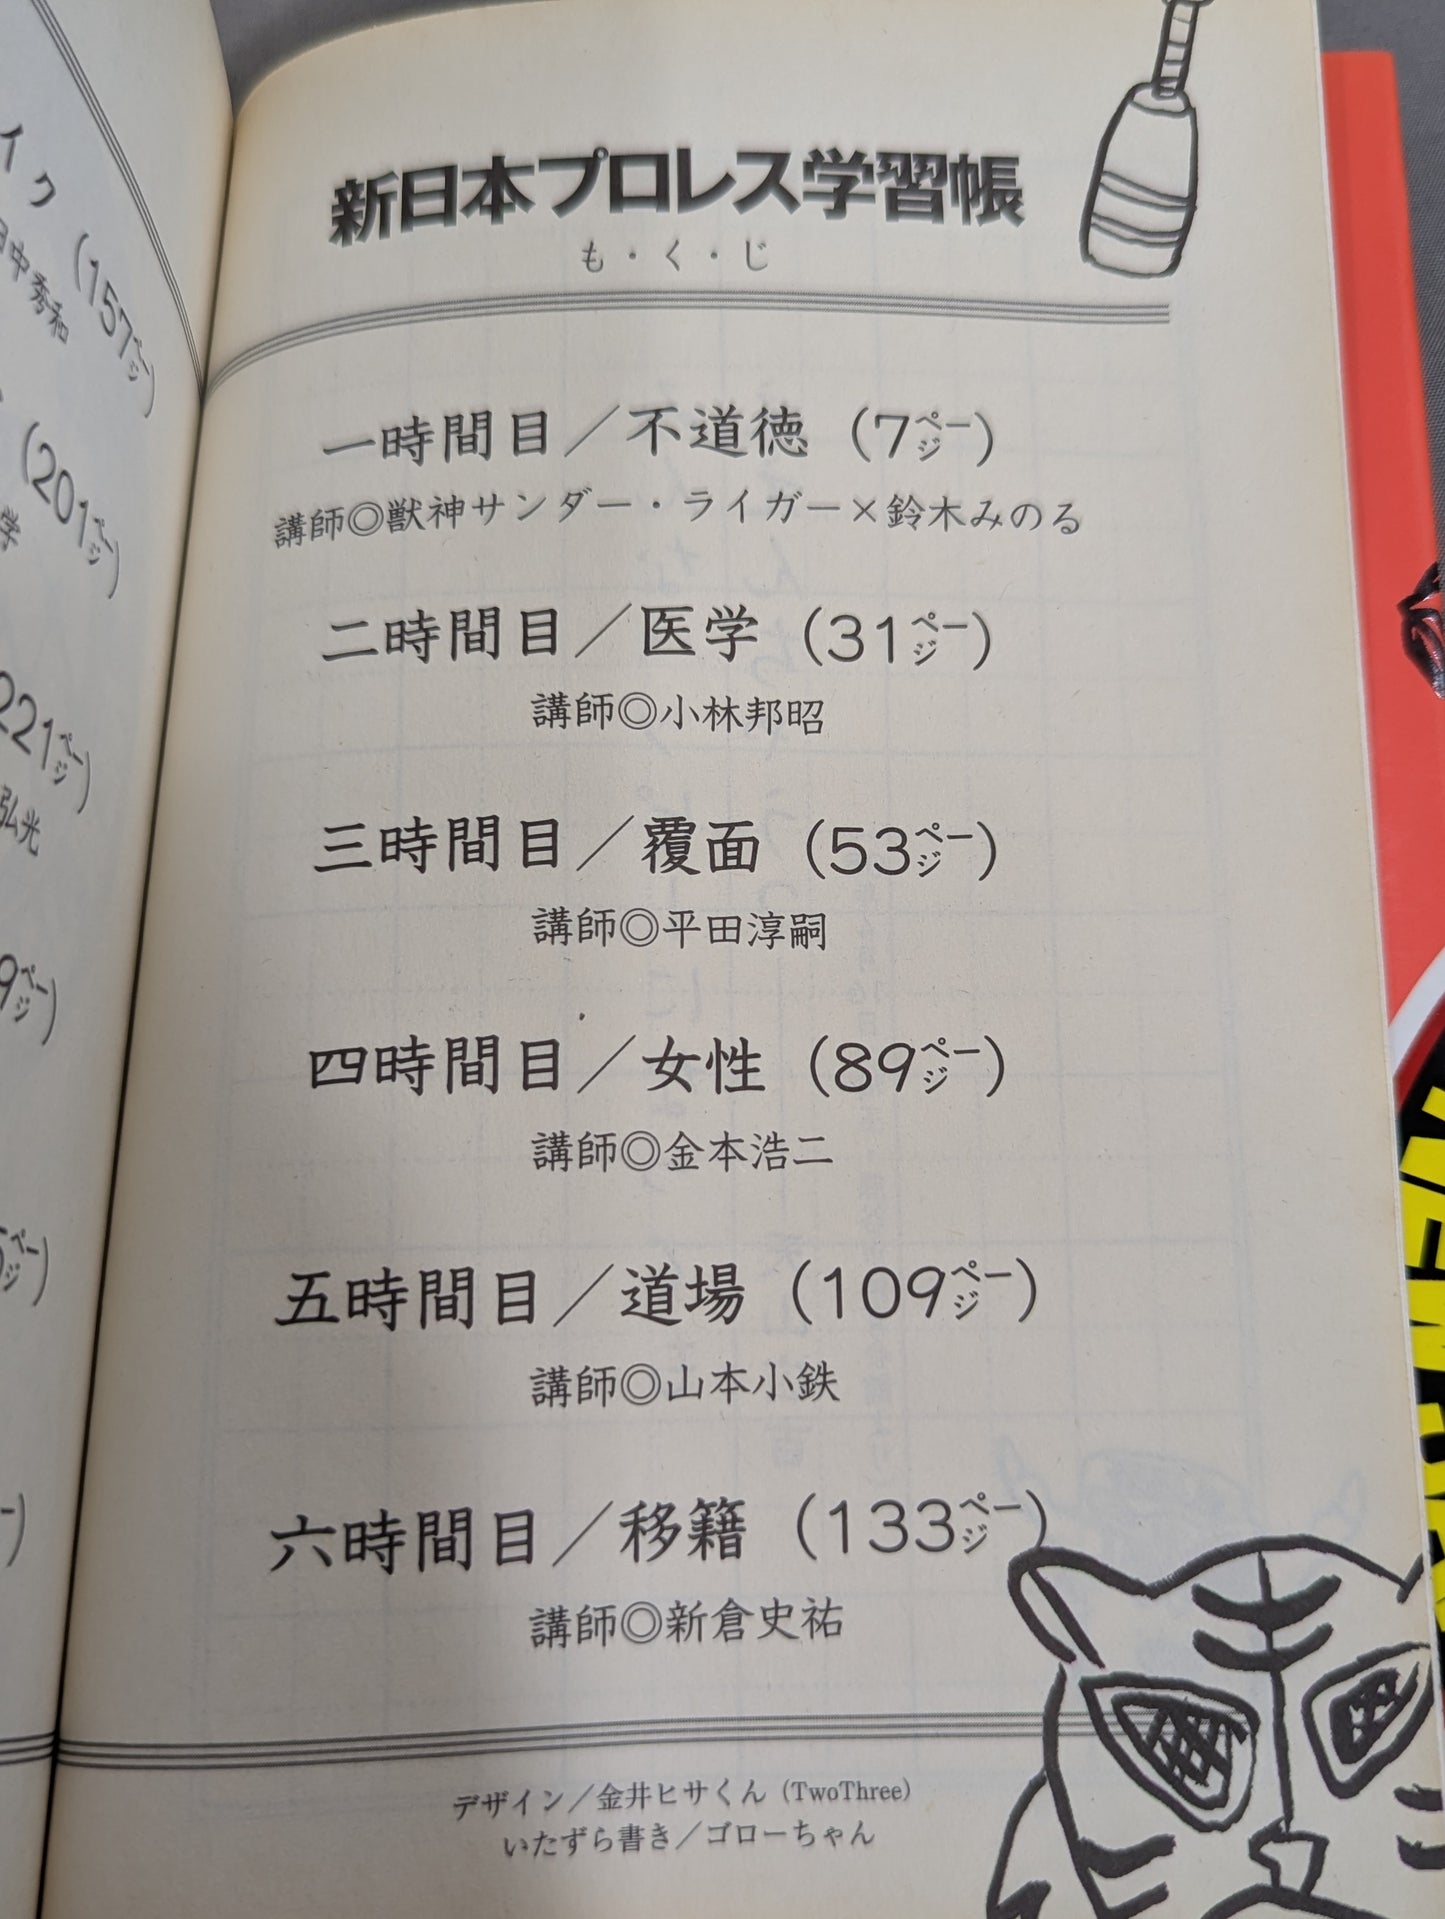 新日本プロレス学習帳
も・く・じ
一時間目／不道徳（7ページ）
講師◎獣神サンダー・ライガー×鈴木みのる
二時間目／医学（31ページ）
講師◎小林邦昭
三時間目／覆面（53ページ）
講師◎平田淳嗣
四時間目／女性（89ページ）
講師◎金本浩二
五時間目／道場（109ページ）
講師◎山本小鉄
六時間目／移籍（133ページ）
講師◎新倉史祐
デザイン／金井ヒサくん（TwoThree）
いたずら書き／ゴローちゃん
イク（157ページ）
中秀和
（201ページ）
学
221ページ）
弘光
9ページ）
ページ）